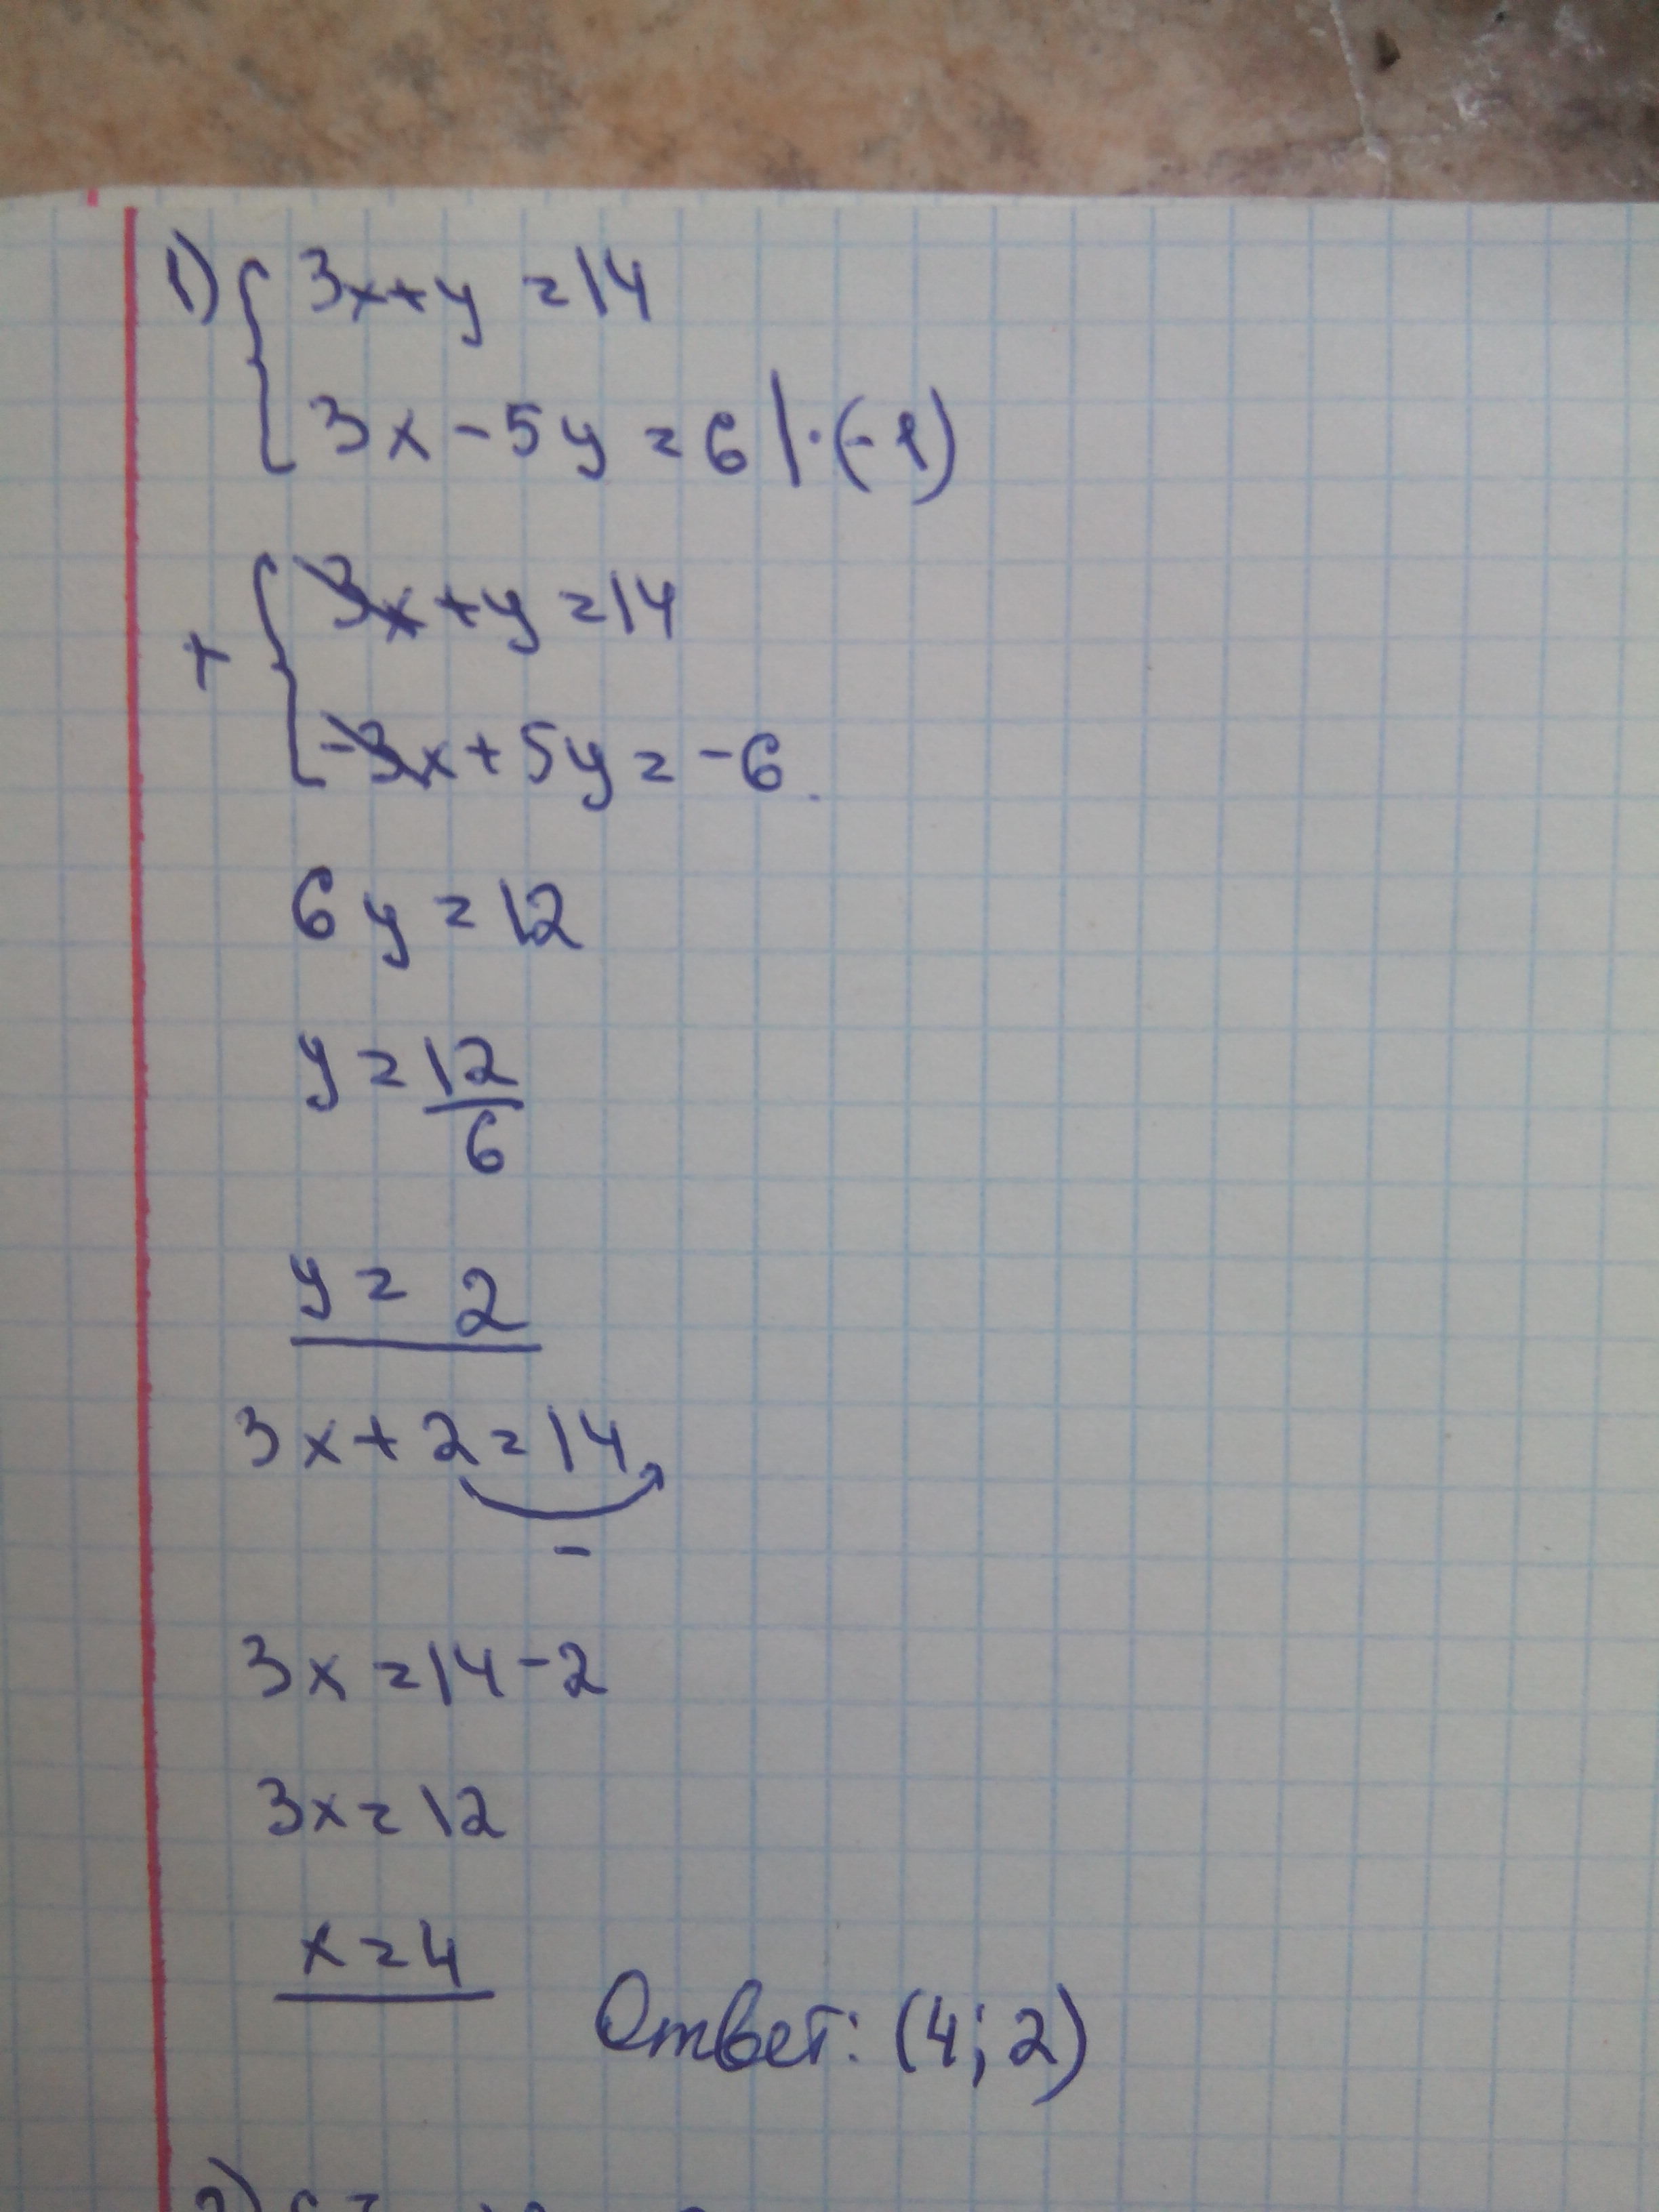 1) { 3x+y=14
3x-5y=6 |·(-1)
+ { 3x+y=14
-3x+5y=-6.
6y=12
y=12/6
y=2
3x+2=14
-
3x=14-2
3x=12
x=4
Ответ: (4;2)
2)